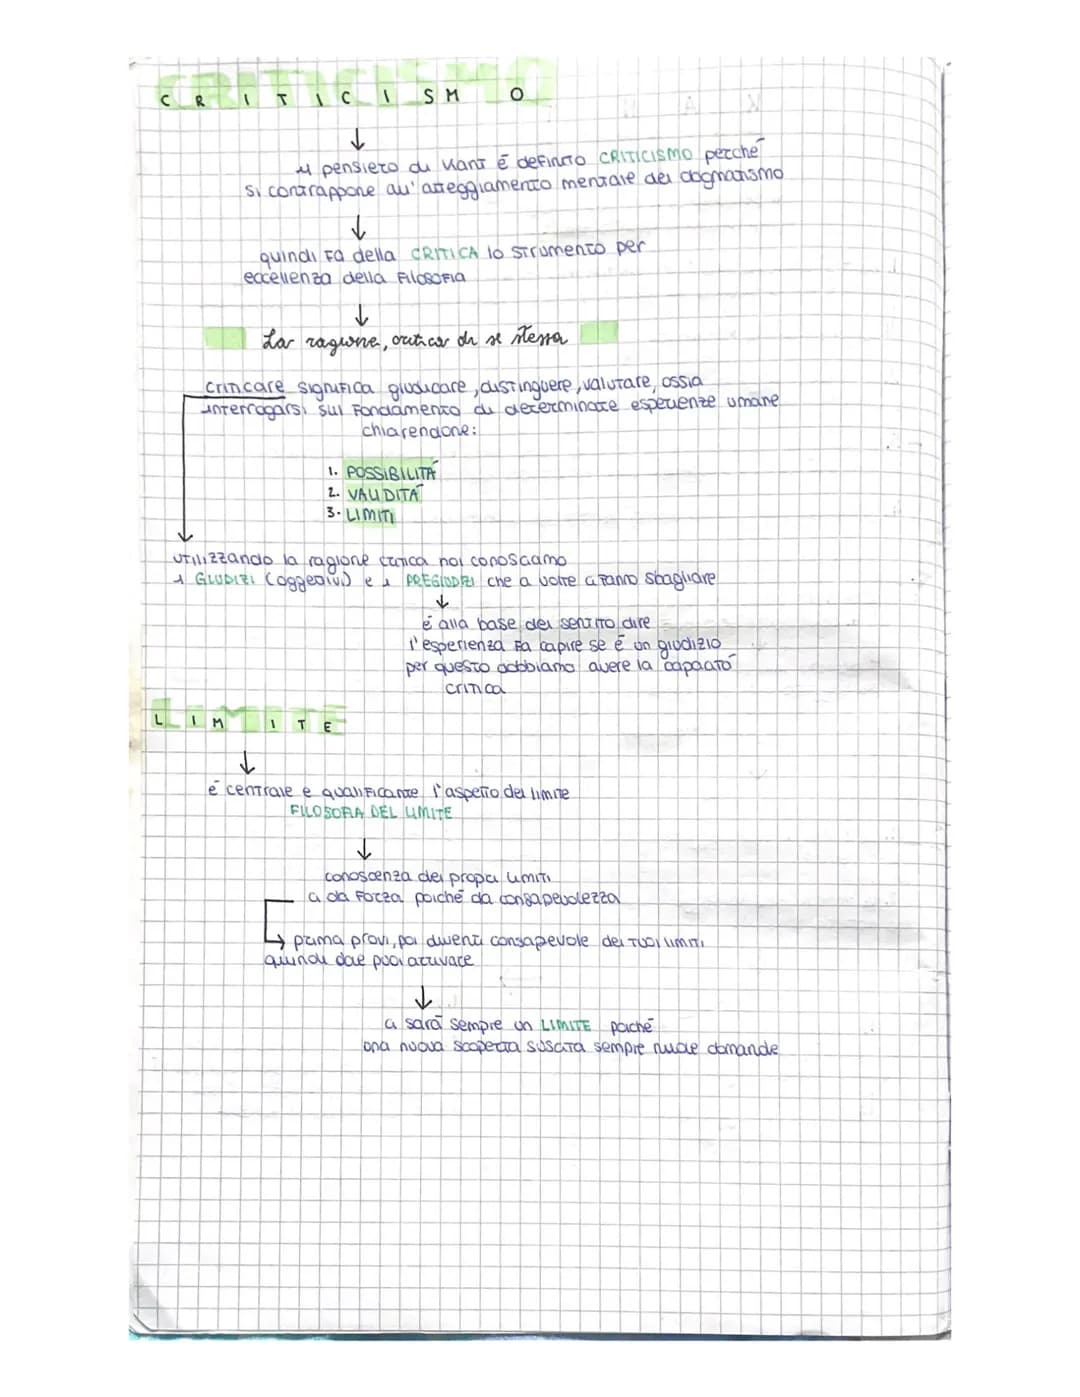 CRITICISMO
il pensiero di Kant é definito CRITICISMO perché
si contrappone all'atteggiamento mentale del dogmatismo
quindi fa della CRITICA lo strumento per
eccellenza della FILOSOFIA
La ragione, critica di se stessa
criticare significa giudicare, distinguere, valutare, ossia
interrogarsi sul fondamento di determinate esperienze umane
chiarendone:
1. POSSIBILITÀ
2. VALIDITÀ
3. LIMITI
utilizzando la ragione critica noi conosciamo
i GIUDIZI (oggettivi) e i PREGIUDIZI che a volte ci fanno sbagliare
é alla base del sentito dire
l'esperienza fa capire se é un giudizio
per questo dobbiamo avere la capacità
critica
LIMITE
é centrale e qualificante l'aspetto del limite
FILOSOFIA DEL LIMITE
conoscenza dei propri limiti
ci dà forza poiché dà consapevolezza
prima provi, poi diventi consapevole dei tuoi limiti
quindi dove puoi arrivare
ci sarà sempre un LIMITE poiché
una nuova scoperta suscita sempre nuove domande